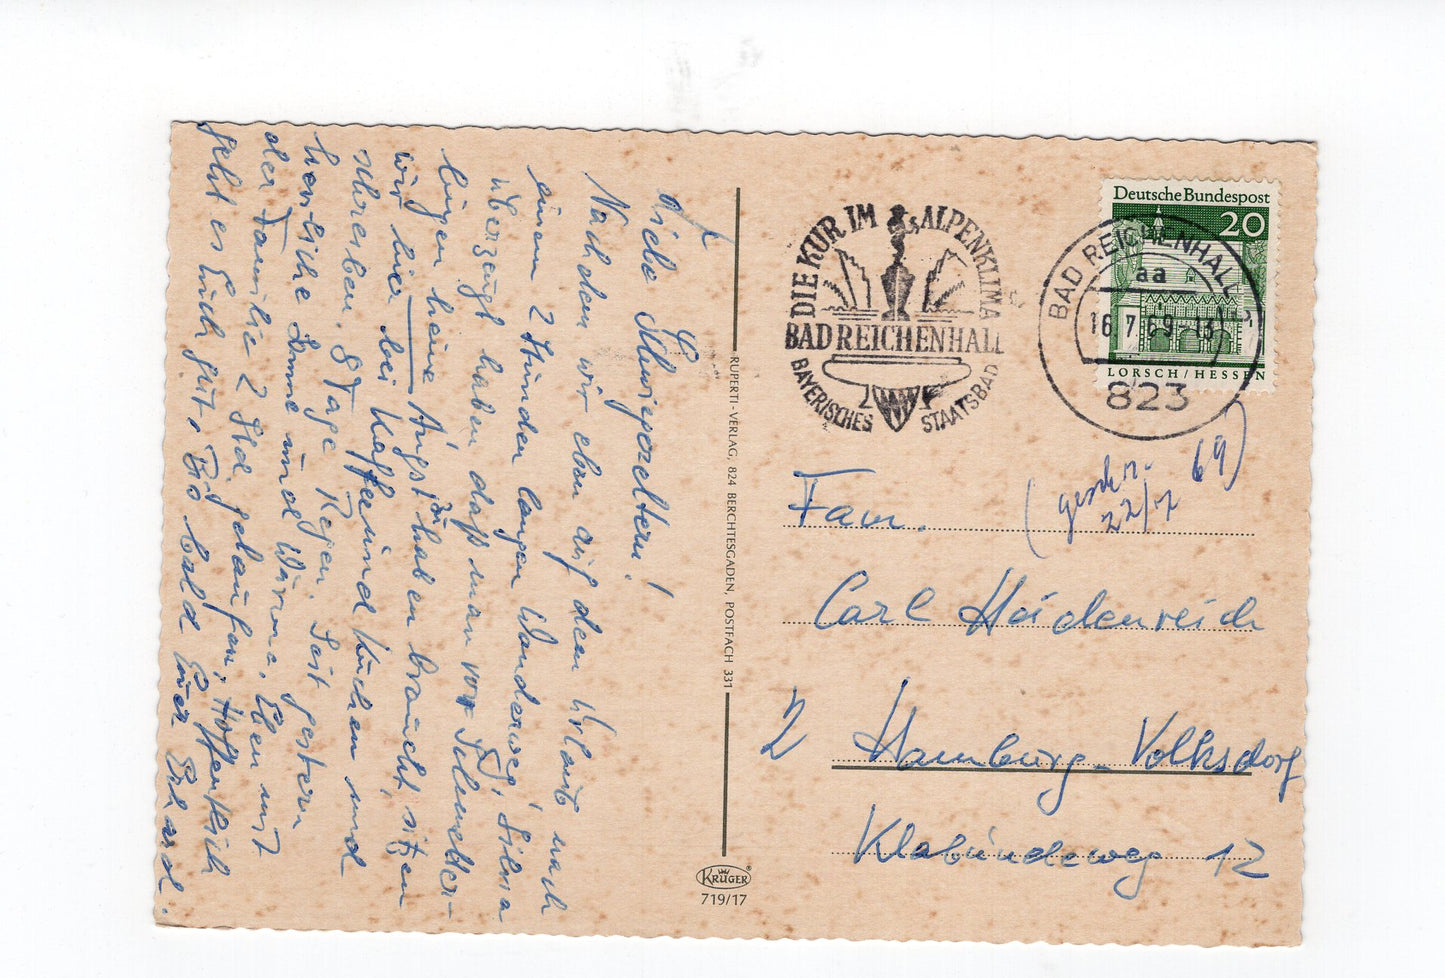 Liebe Schwiegereltern!
Nachdem wir eben auf dem Urlaub nach
einem 2 Stünden langen Wanderweg, Silvia
überzeugt haben daß man vor Schmetter-
lingen keine Angst zu haben braucht, sitzen
wir hier bei Kaffee und Küchen und
schreiben. 8 Tage Regen. Seit gestern
herrliche Sonne und Wärme. Eben mit
der Familie 2 Std. gelaufen. Hoffentlich
geht es Euch gut. Bis bald Euer Erhard.
RUPERTI-VERLAG, 824 BERCHTESGADEN, POSTFACH 331
KRÜGER
719/17
DIE KUR IM ALPENKLIMA
BAD REICHENHALL
BAYERISCHES STAATSBAD
Deutsche Bundespost
20
LORSCH / HESSEN
BAD REICHENHALL
aa
16.7.69
823
(geschr. 22/7 69)
Fam.
Carl Heidenreich
2 Hamburg-Volksdorf
Klabündeweg 12